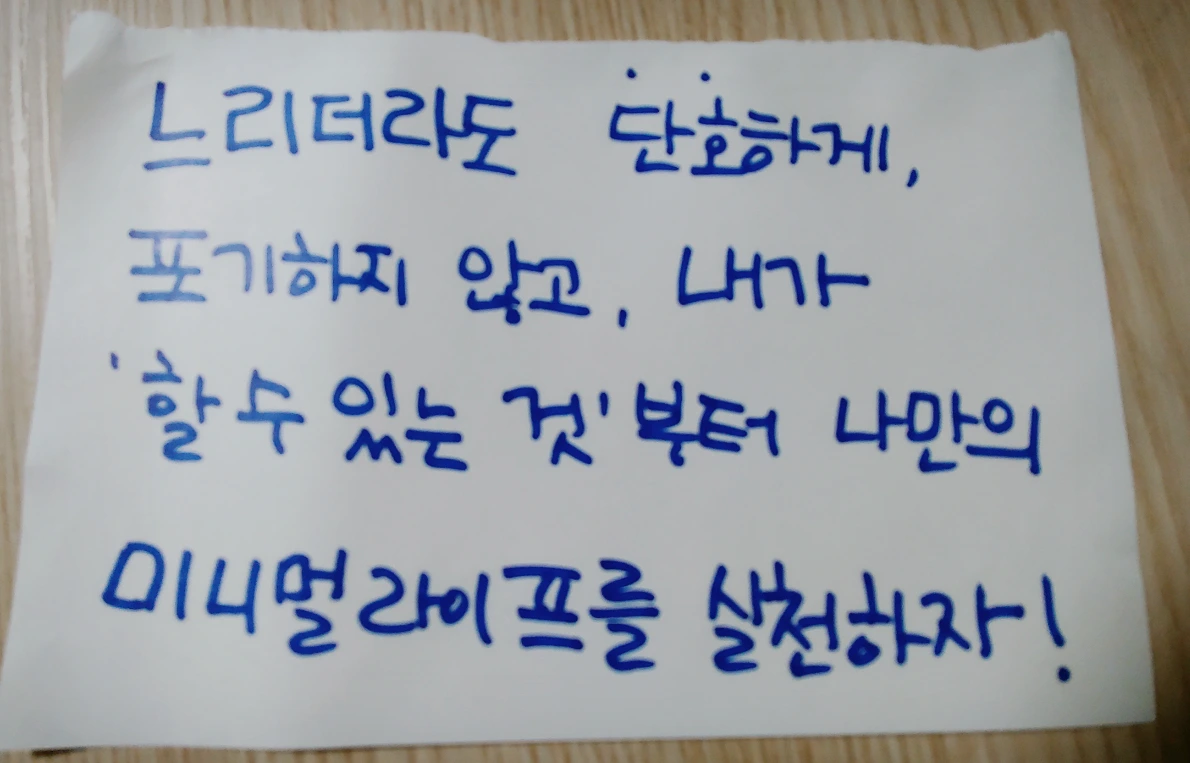 느리더라도 단호하게,
포기하지 않고, 내가
'할 수 있는 것'부터 나만의
미니멀라이프를 실천하자!